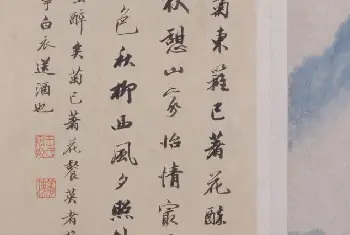 菊東籬已著花醉
秋憩山家怡情寂
色秋柳西風夕照
醉矣菊已著花餐英者
白衣送酒也